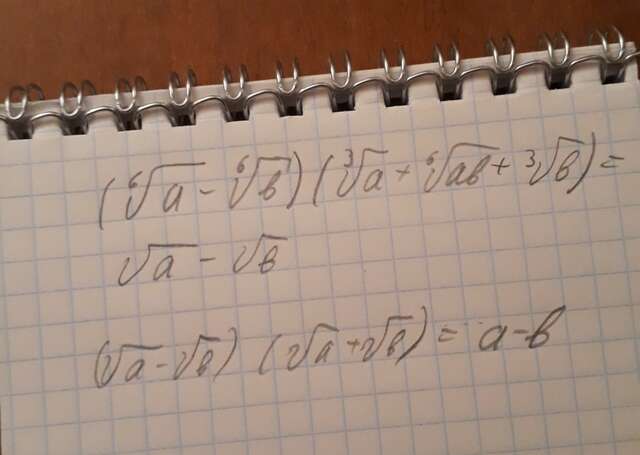 (⁶√a - ⁶√b)(³√a + ⁶√ab + ³√b) =
√a - √b
(√a - √b) (√a + √b) = a - b